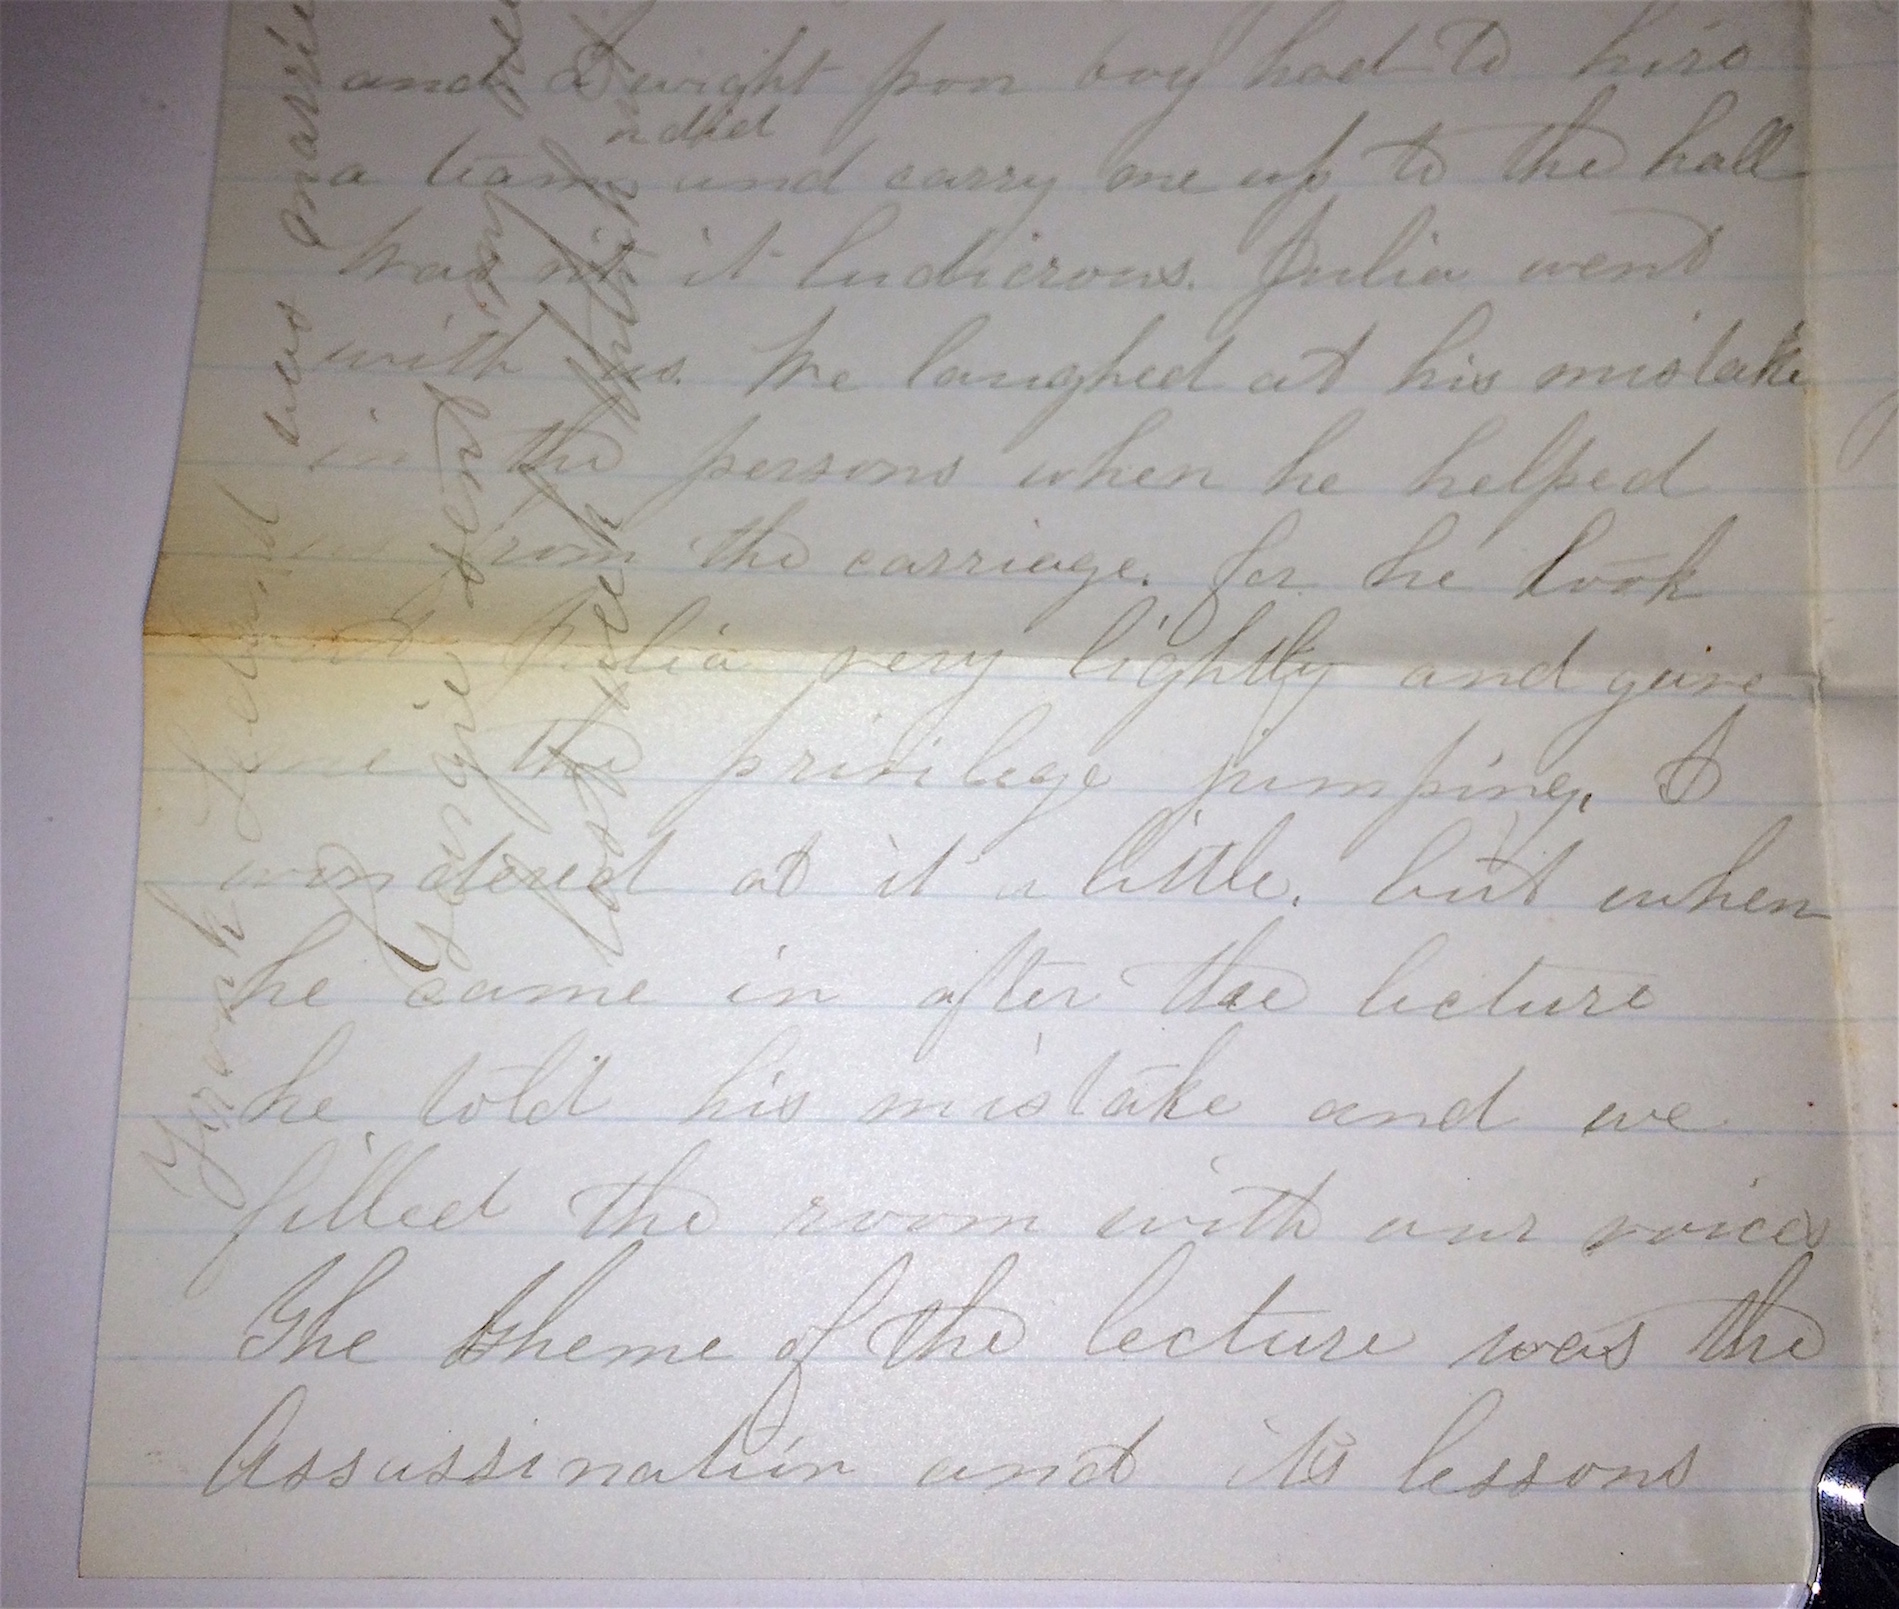 and Dwight poor boy had to hire
ndid
a team and carry me up to the hall
Was nt it ludicrous. Julia went
with us. We laughed at his mistake
in the persons when he helped
us from the carriage. for he took
out Julia very lightly and gave
me the privilege jumping. I
wondered at it a little. but when
he came in after the lecture
he told his mistake and we
filled the room with our voices
The theme of the lecture was the
Assassination and its lessons
Frank Ledand was married
Georgie sent my
last week